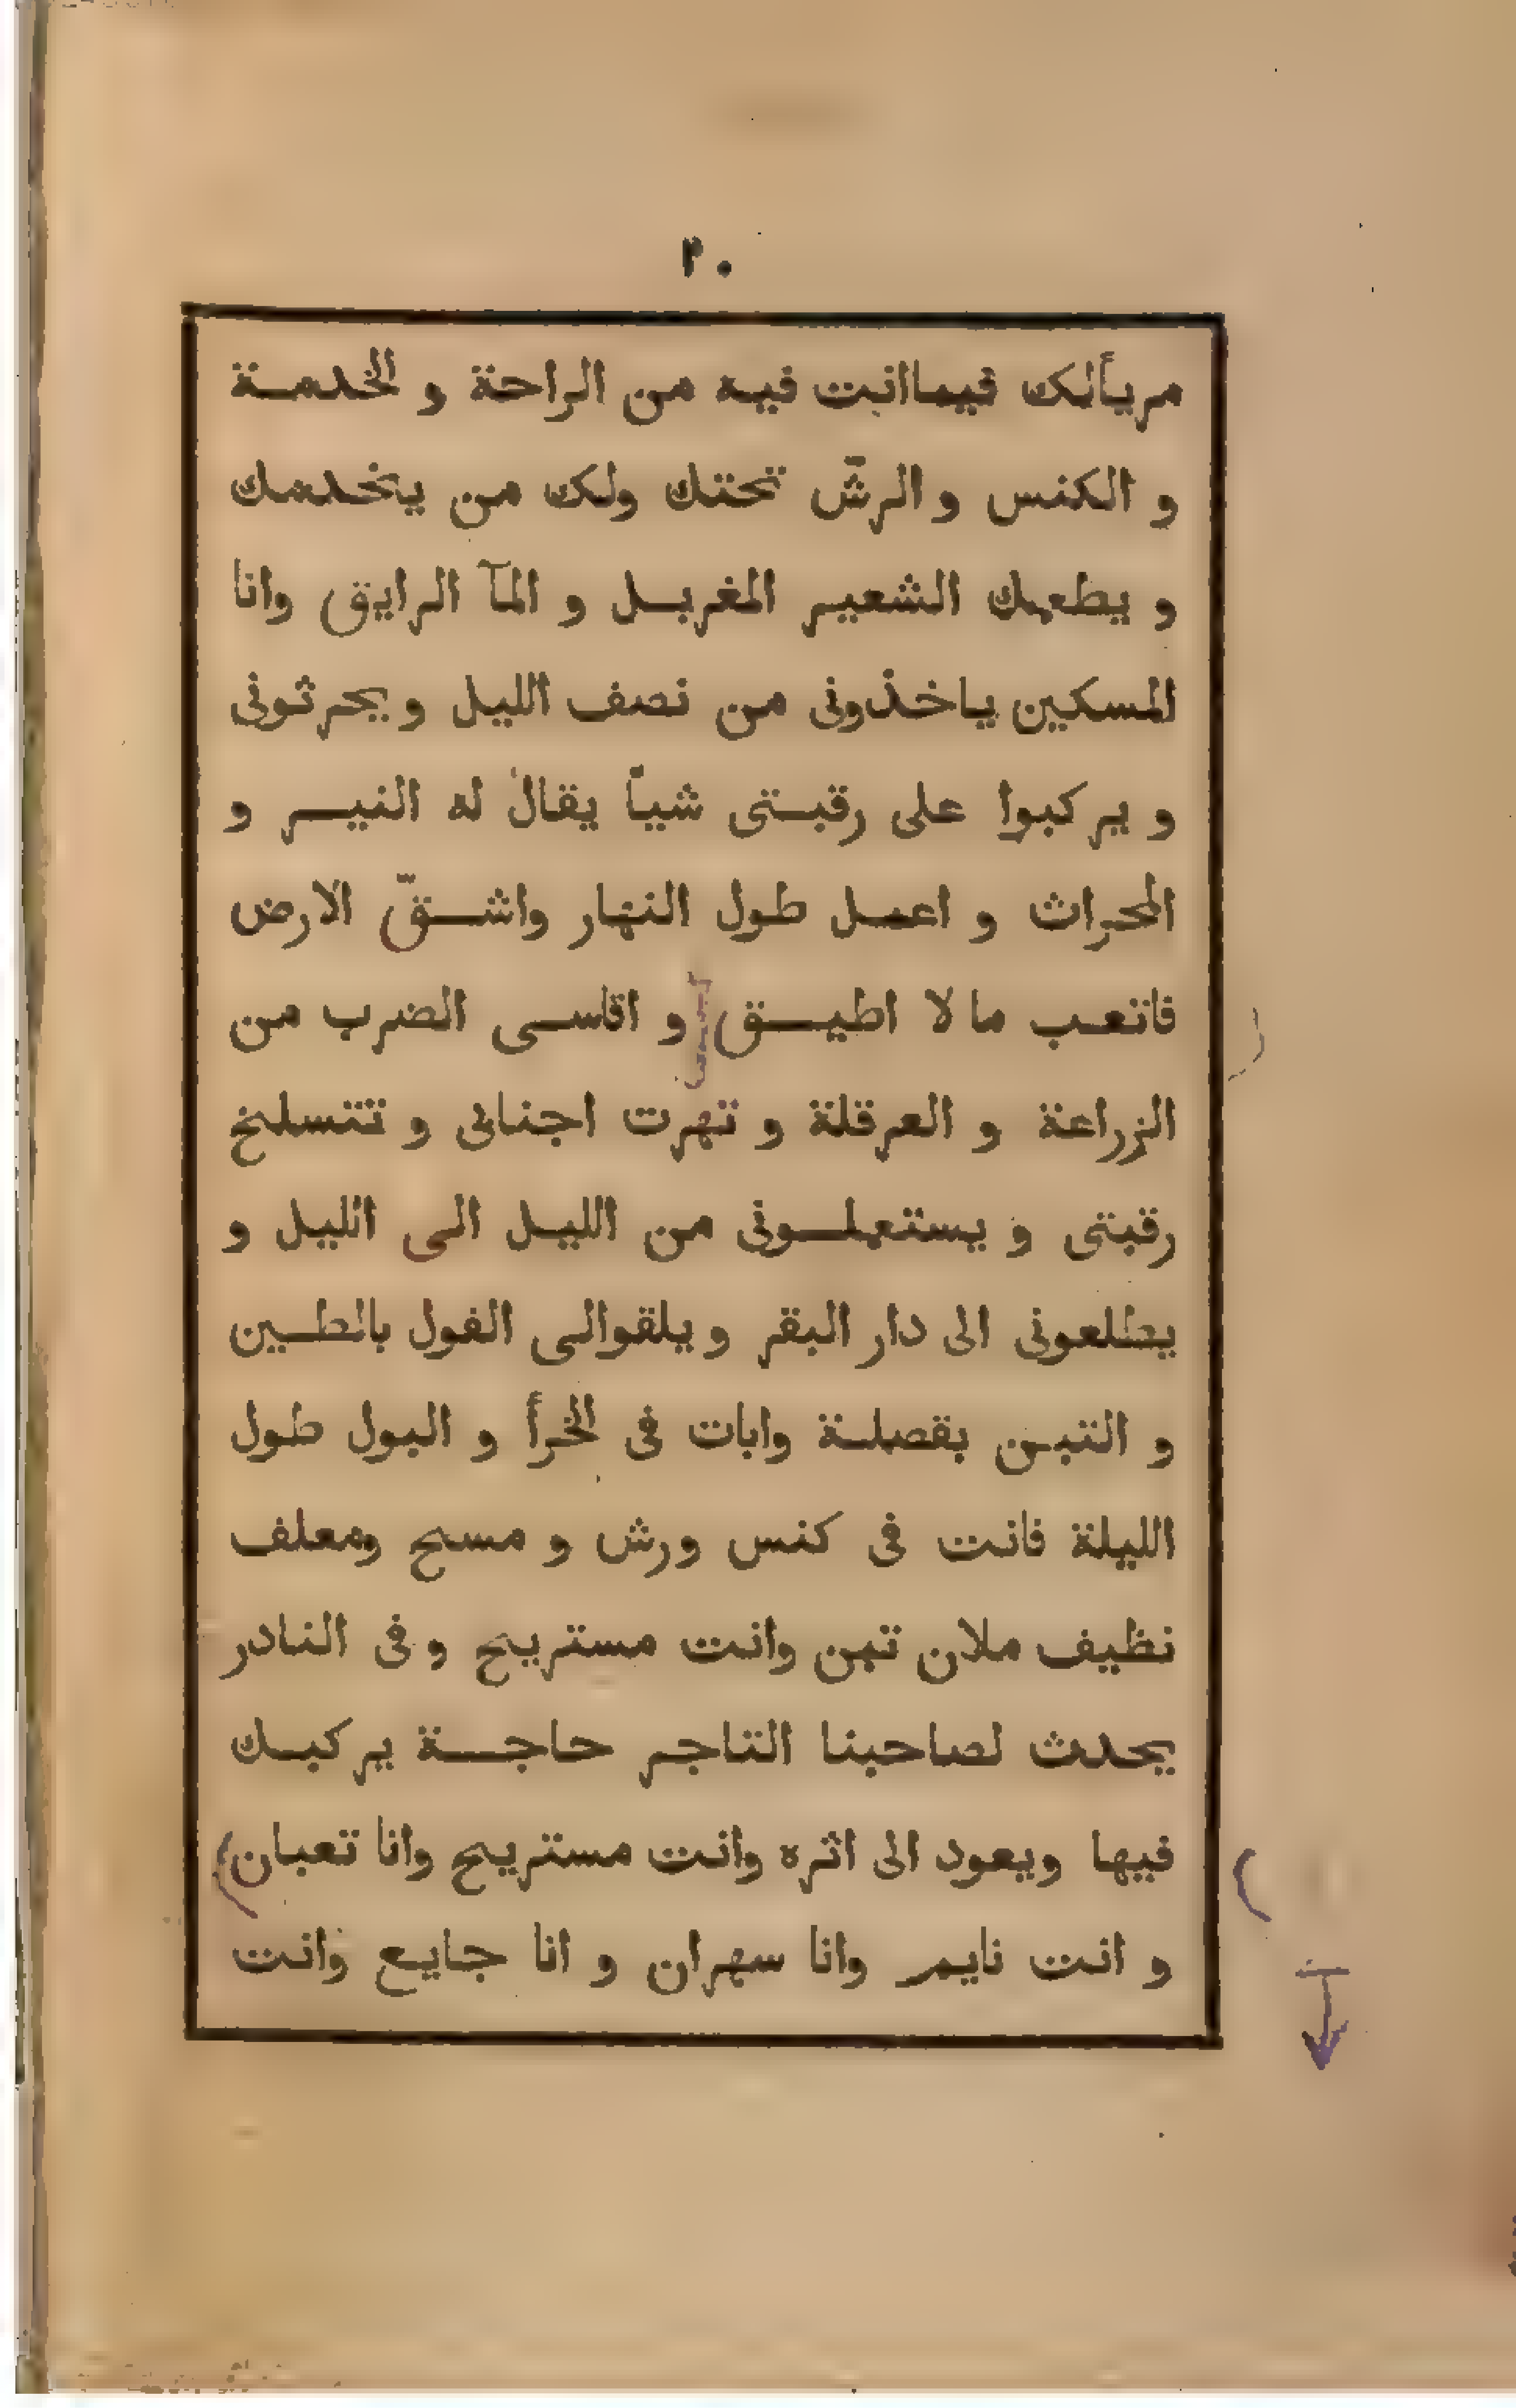 ٢٠
مريألك فيماانت فيه من الراحة و الخدمة
و الكنس و الرشّ تحتك ولك من يخدمك
و يطعمك الشعير المغربل و المآ الرايق وانا
المسكين ياخذونى من نصف الليل و يحرثونى
و يركبوا على رقبتى شياً يقال له النير و
المحراث و اعمل طول النهار واشقّ الارض
فاتعب ما لا اطيق و اقاسى الضرب من
الزراعة و العرقلة و تهرت اجنانى و تتسلخ
رقبتى و يستعملونى من الليل الى الليل و
يطلعونى الى دار البقر و يلقوالى الفول بالطين
و التبن بقصلة وابات فى الخرأ و البول طول
الليلة فانت فى كنس ورش و مسح ومعلف
نظيف ملان تبن وانت مستريح و فى النادر
يحدث لصاحبنا التاجر حاجة يركبك
فيها ويعود الى اثره وانت مستريح وانا تعبان
و انت نايم وانا سهران و انا جايع وانت